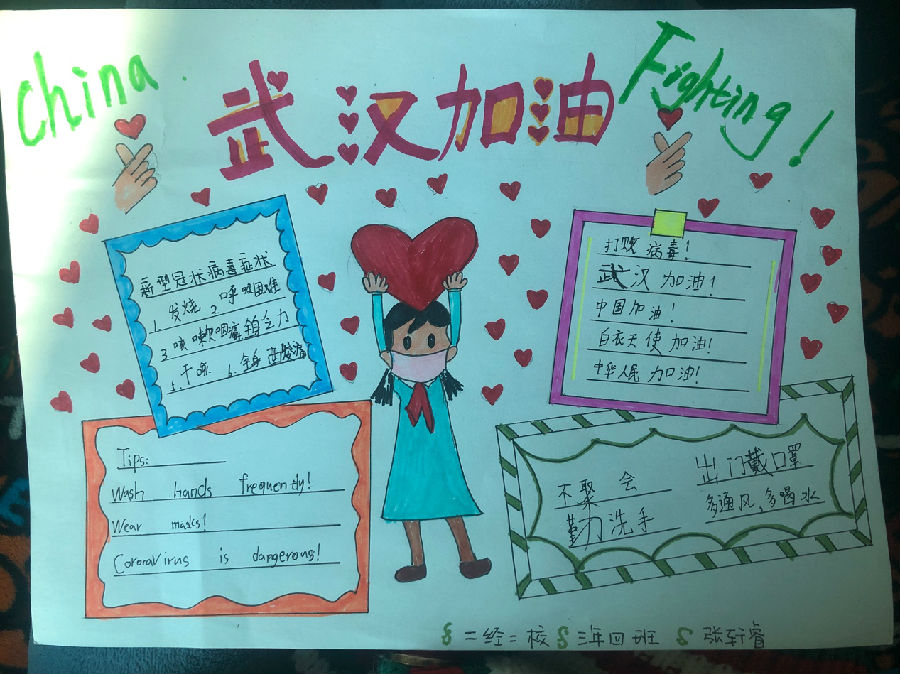 China
武汉加油
Fighting!
新型冠状病毒症状
1. 发烧 2. 呼吸困难
3. 咳嗽咽痛 乏力
5. 干咳 6.
打败病毒!
武汉加油!
中国加油!
白衣天使加油!
中华人民加油!
Tips:
Wash hands frequently!
Wear masks!
Coronavirus is dangerous!
不聚会
出门戴口罩
勤洗手
多通风,多喝水
二经二校 三年四班 张轩睿